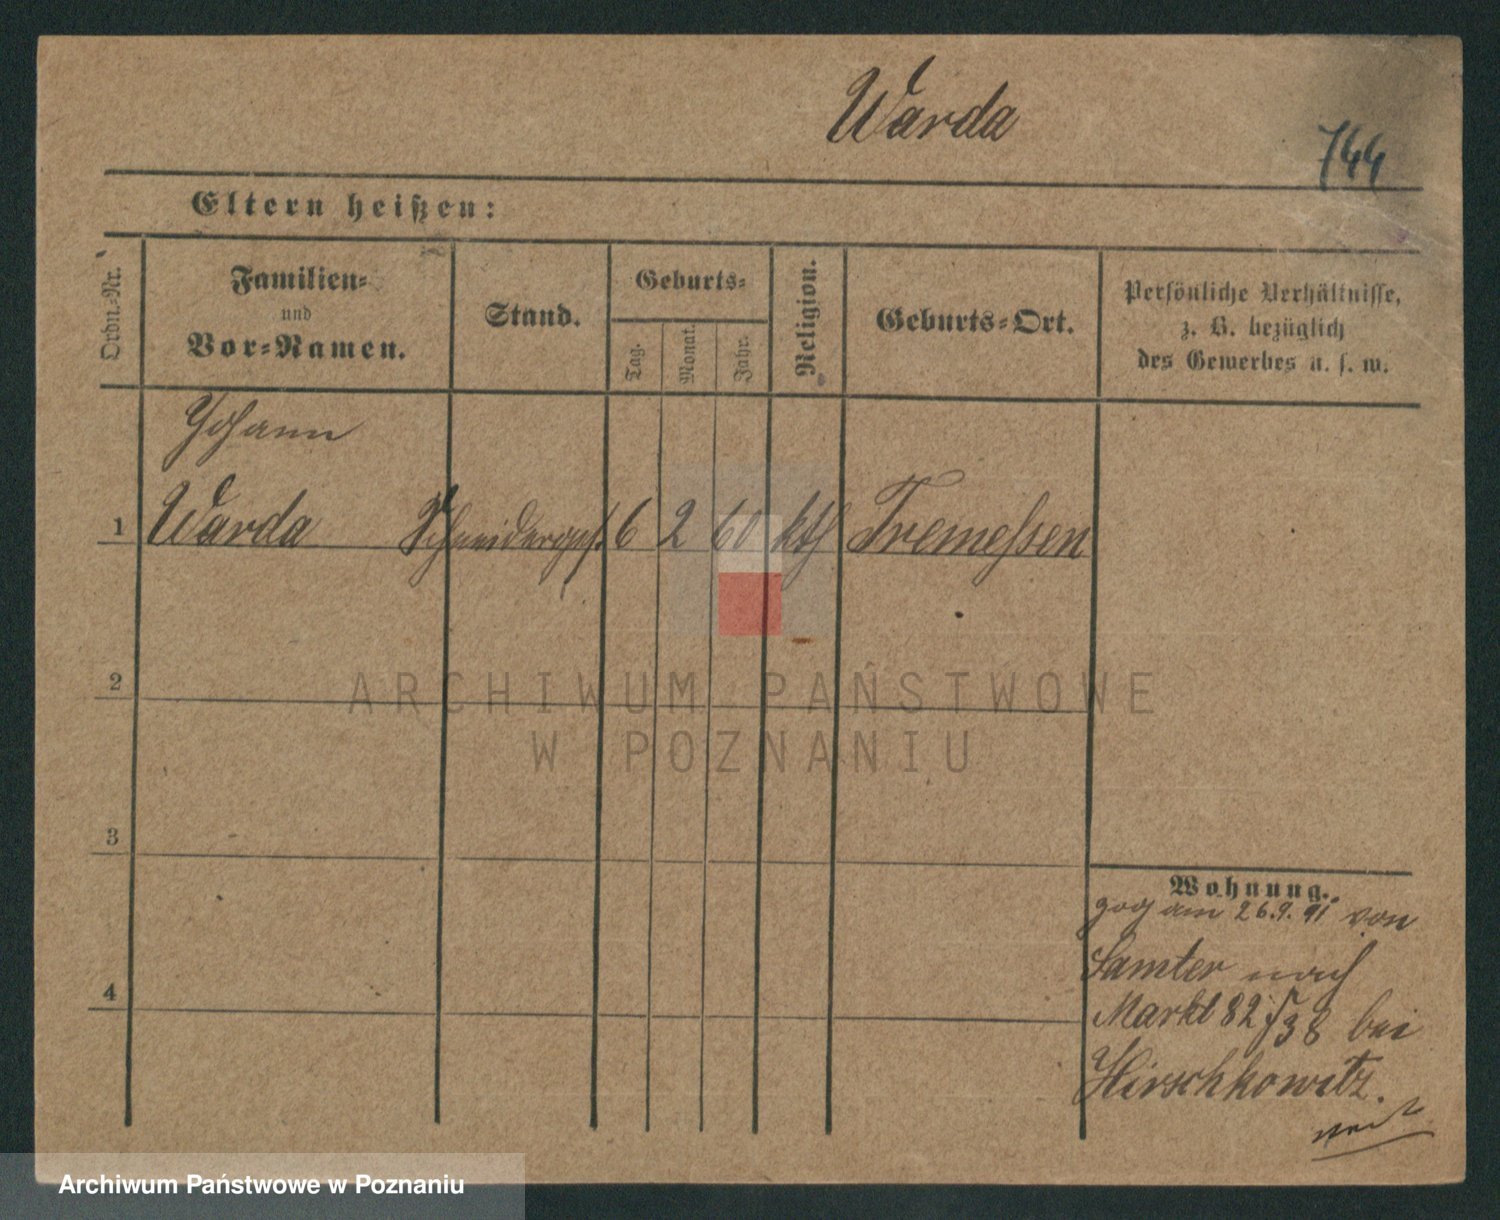 Warda
744
Eltern heißen:
Ordn.-Nr.
Familien-
und
Vor-Namen.
Stand.
Geburts-
Tag.
Monat.
Jahr.
Religion.
Geburts-Ort.
Persönliche Verhältnisse,
z. B. bezüglich
des Gewerbes u. s. w.
Johann
1 Warda Schneiderges. 6 2 60 kth Tremessen
2
3
4
Wohnung.
zog am 26.9.91 von
Samter nach
Markt 82 bei
Hirschkowitz.
ARCHIWUM PAŃSTWOWE
W POZNANIU
Archiwum Państwowe w Poznaniu